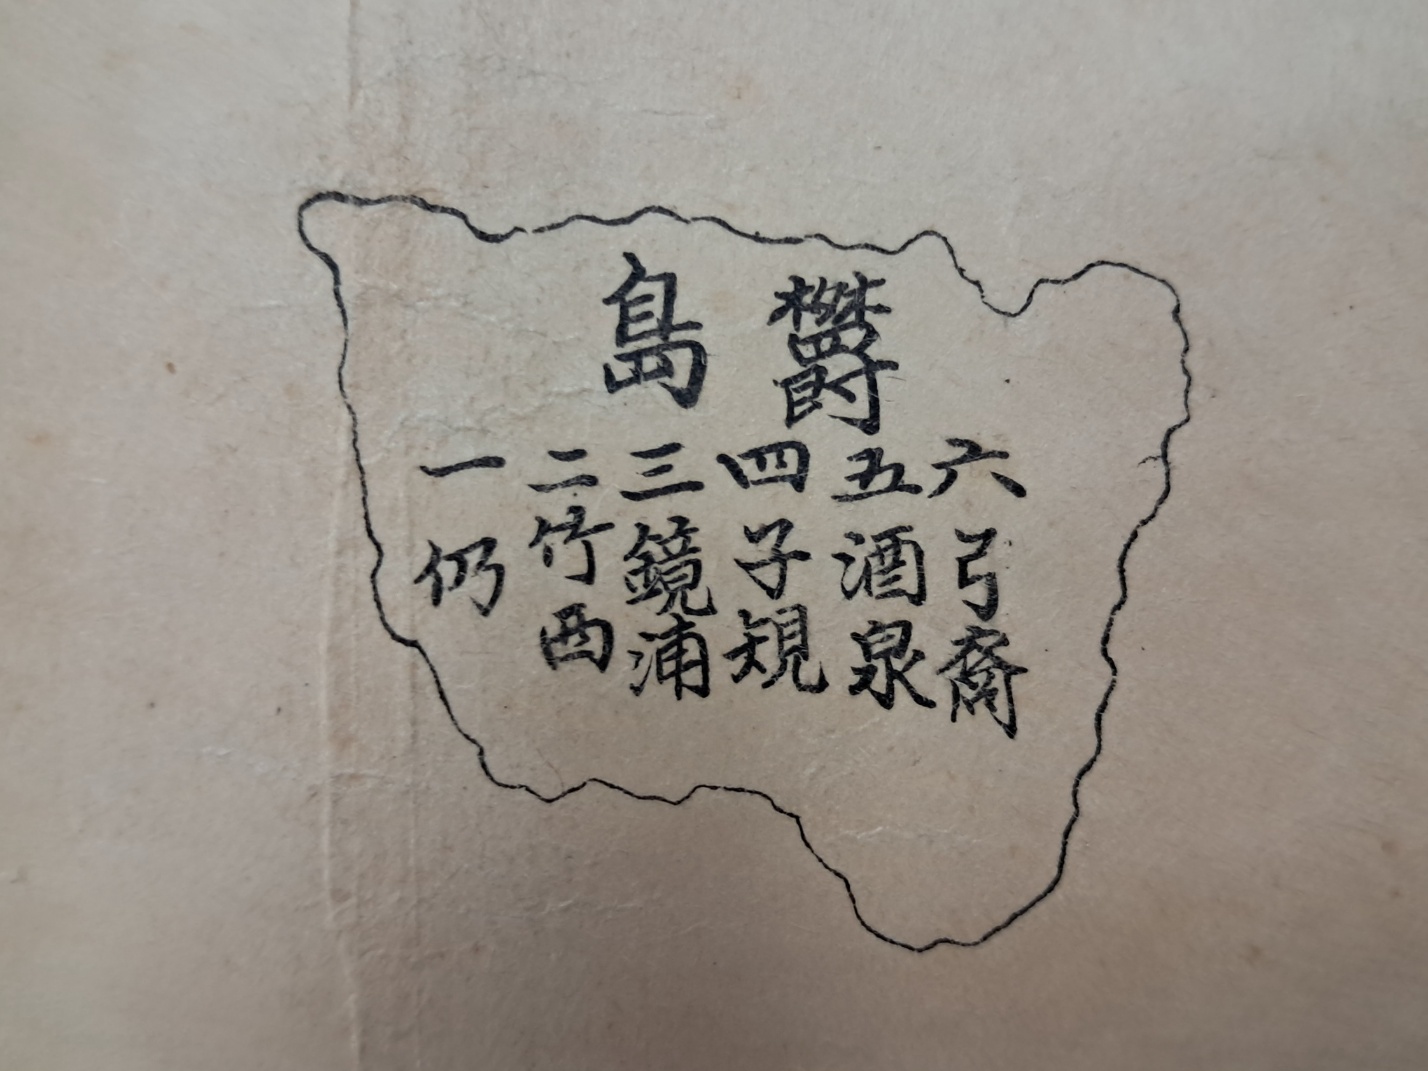 欝島
六弓裔
五酒泉
四子䂓
三鏡浦
二竹西
一仍